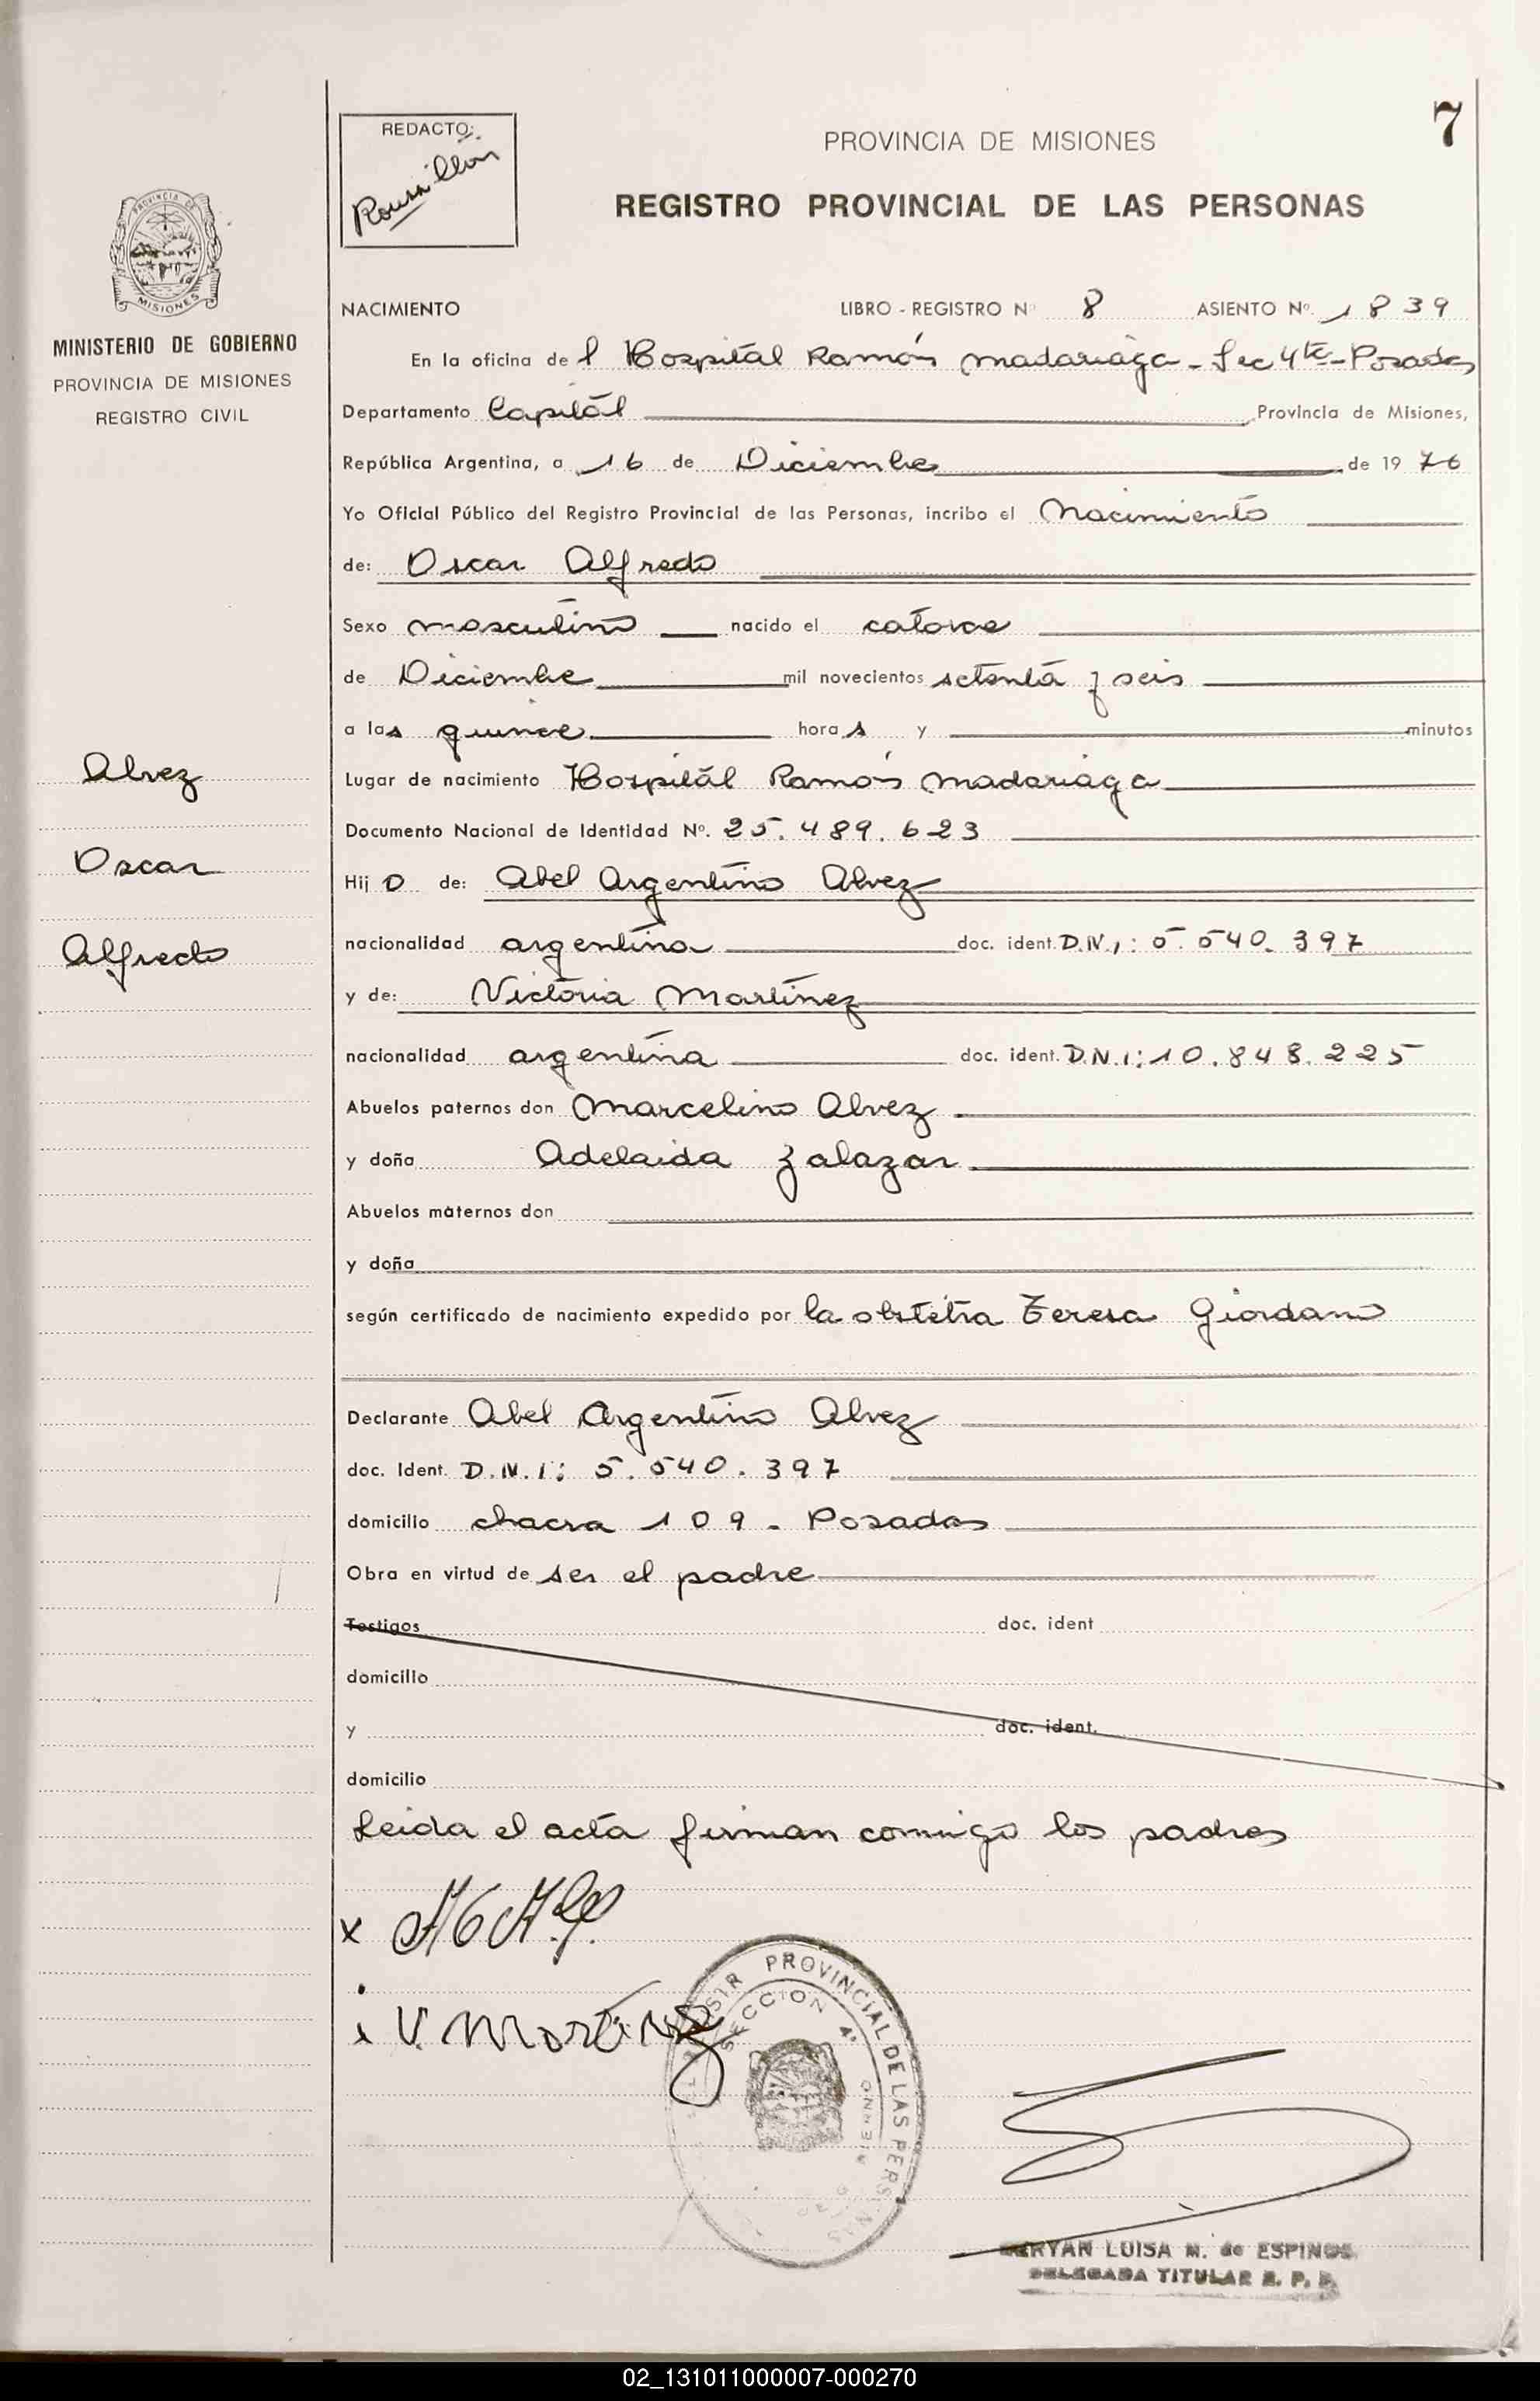 7
REDACTO:
PROVINCIA DE MISIONES
REGISTRO PROVINCIAL DE LAS PERSONAS
PROVINCIA DE
MISIONES
MINISTERIO DE GOBIERNO
PROVINCIA DE MISIONES
REGISTRO CIVIL
NACIMIENTO LIBRO - REGISTRO Nº 8 ASIENTO Nº 1839
En la oficina del Hospital Ramón Madariaga - Sec 4ta - Posadas
Departamento Capital Provincia de Misiones,
República Argentina, a 16 de Diciembre de 1976
Yo Oficial Público del Registro Provincial de las Personas, incribo el Nacimiento
de: Oscar Alfredo
Sexo masculino nacido el catorce
de Diciembre mil novecientos setenta y seis
a las quince horas y minutos
Lugar de nacimiento Hospital Ramón Madariaga
Documento Nacional de Identidad Nº. 25.489.623
Hijo de: Abel Argentino Alvez
nacionalidad argentina doc. ident. D.N.I: 5.540.397
y de: Victoria Martinez
nacionalidad argentina doc. ident. D.N.I: 10.848.225
Abuelos paternos don Marcelino Alvez
y doña Adelaida Zalazar
Abuelos maternos don
y doña
según certificado de nacimiento expedido por la obstetra Teresa Giordano
Declarante Abel Argentino Alvez
doc. Ident. D.N.I: 5.540.397
domicilio chacra 109 - Posadas
Obra en virtud de ser el padre
Testigos doc. ident
domicilio
y doc. ident.
domicilio
Leida el acta firman conmigo los padres
x
x V. Martinez
PROVINCIAL DE LAS PERSONAS
SECCION 4ª
LUISA M. de ESPINOS
DELEGADA TITULAR R. P. P.
Alvez
Oscar
Alfredo
02_131011000007-000270